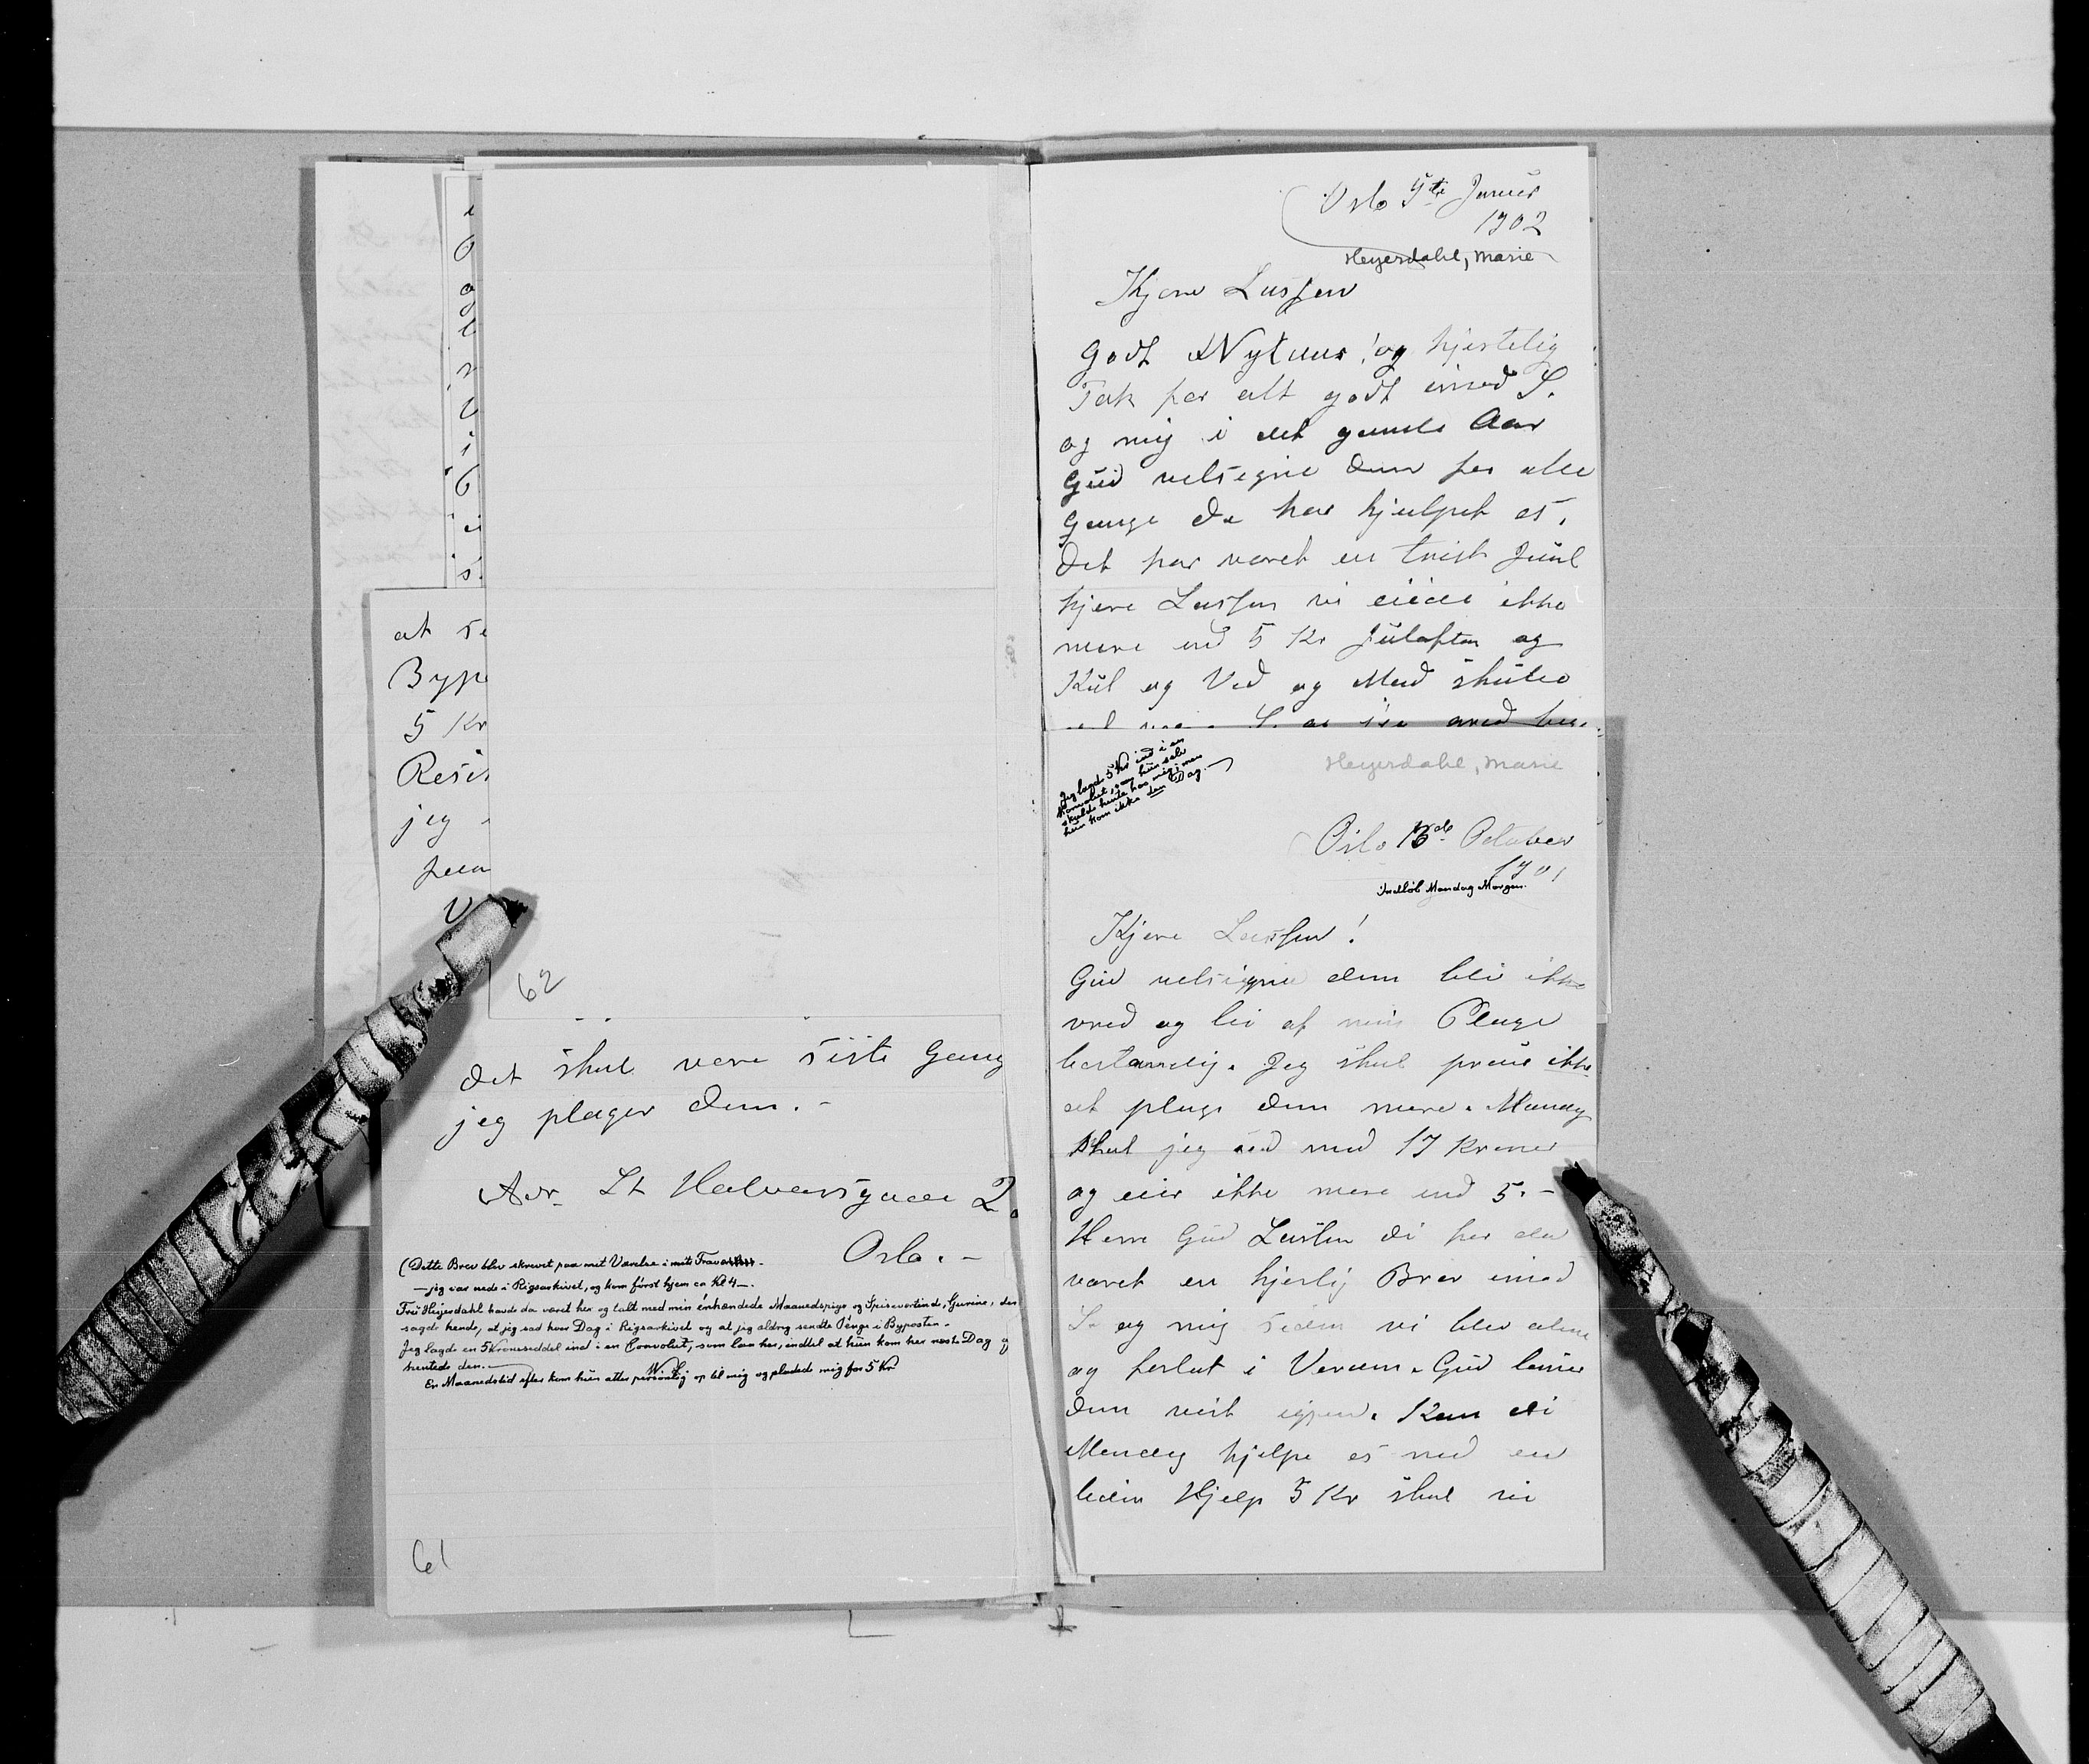 at
Bype
5 Kr
jeg
62
det skal være siste Gang
jeg plager Dem. -
Adr. St Halvorsgade 2.
Oslo. -
(Dette Brev blev skrevet paa mit Værelse i mit
- jeg var nede i Rigsarkivet, og kom først hjem ca Kl 4 -.
Frü Heyerdahl havde da været her og talt med min énhændede Maanedspige og Spisevertinde, Gurine, der
sagde hende, at jeg sad hver Dag i Rigsarkivet og at jeg aldrig sendte Penge i Byposten. -
Jeg lagde en 5 Kroneseddel ind i en Convolüt, som laa her, indtil at hün kom her næste Dag og
hentede den.
En Maanedstid efter kom hün atter personlig op til mig og plagede mig for 5 Kr
61
Oslo 9de Januar
1902
Heyerdahl, Marie
Kjære Lassen
Godt Nytaar! og hjertelig
Tak for alt godt imod S.
og mig i det gamle Aar
Güd velsigne Dem for alle
Gange De har hjulpet os.
Det har været en trist Jüul
kjære Lassen vi eiede ikke
mere end 5 Kr Jüleaften og
Kül og Ved og Mad skülde
Jeg lagde 5 Kr ind i en
Konvolüt, som hün selv
skülde hente hos mig, men
hün kom ikke den Dag.
Heyerdahl, Marie
Oslo 13de October
1901
Indløb Mandag Morgen.
Kjære Lassen!
Güd velsigne dem bli ikke
vred og lei af min Plage
bestandig. Jeg skal prøve ikke
at plage dem mere. Mandag
skal jeg üd med 17 Kroner
og eier ikke mere end 5. -
Herre Güd Lassen di har da
været en kjærlig Bror imod
S. og mig siden vi blev alene
og forlat i Verden. Güd lønner
dem vist igjen. Kan di
Mandag hjelpe os med en
liden Hjelp 5 Kr skal vi